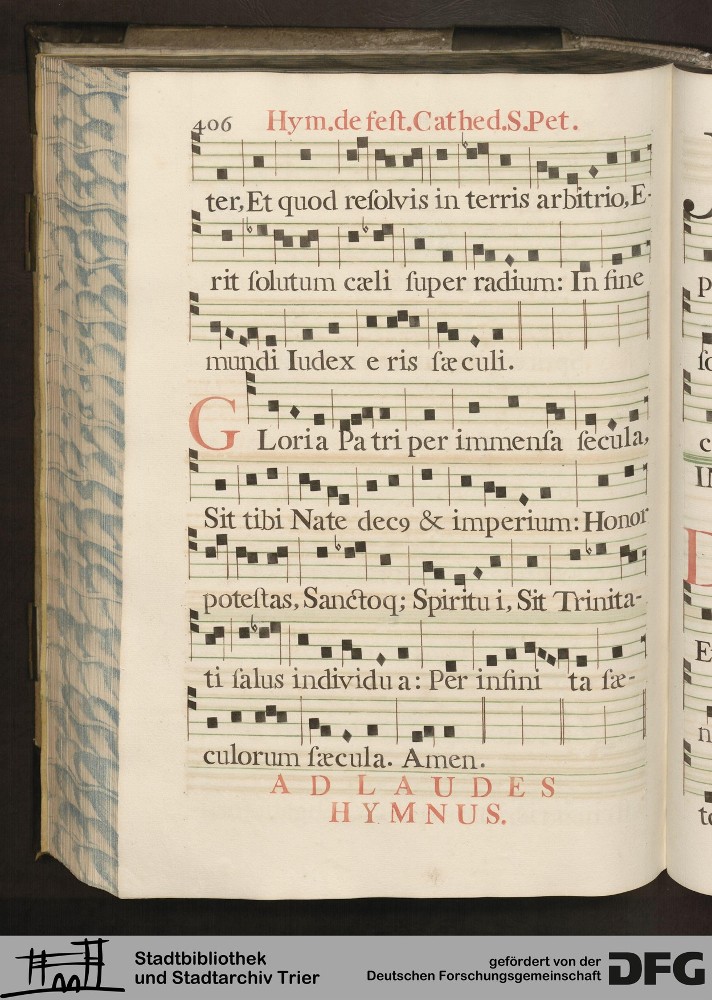 406 Hym.de feſt.Cathed.S.Pet.
ter,Et quod reſolvis in terris arbitrio,E-
rit ſolutum cæli ſuper radium: In fine
mundi Iudex e ris ſæ culi.
G Loria Pa tri per immenſa ſecula,
Sit tibi Nate dec9 & imperium: Honor
poteſtas, Sanctoq; Spiritu i, Sit Trinita-
ti ſalus individu a: Per infini ta ſæ-
culorum ſæcula. Amen.
AD LAUDES
HYMNUS.
Stadtbibliothek
und Stadtarchiv Trier
gefördert von der
Deutschen Forschungsgemeinschaft
DFG